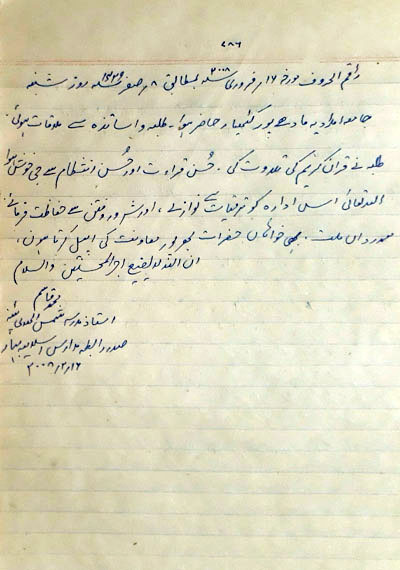 ۷۸۶
راقم الحروف مورخہ ۱۶ / فروری ۲۰۰۸ مطابق ۸ / صفر ۱۴۲۹ روز شنبہ
جامعہ امدادیہ مادھے پور کٹیہار حاضر ہوا۔ طلبہ و اساتذہ سے ملاقات ہوئی
طلبہ نے قرآن کریم کی تلاوت کی۔ حُسن قراءت اور حُسن انتظام سے جی خوش ہوا
اللہ تعالیٰ اس ادارہ کو ترقیات سے نوازے، اور شرور و فتن سے حفاظت فرمائے
ہمدردان ملت، بہی خواہان حضرات بھرپور معاونت کی اپیل کرتا ہوں،
ان اللہ لا یضیع اجر المحسنین والسلام
محمد قاسم
استاذ مدرسہ شمس الہدیٰ پٹنہ
صدر رابطہ مدارس اسلامیہ بہار
۱۶/۲/۲۰۰۸